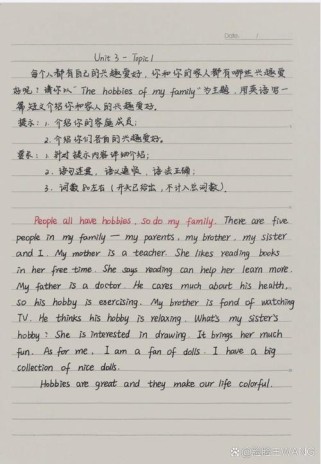 Date: /
Unit 3 - Topic 1
每个人都有自己的兴趣爱好,你和你的家人都有哪些兴趣爱
好呢?请你以"The hobbies of my family"为主题,用英语写一
篇短文介绍你和家人的兴趣爱好。
提示:1. 介绍你的家庭成员;
2. 介绍你们各自的兴趣爱好。
要求:1. 针对提示内容详细介绍;
2. 语句正确,语义通顺,语法正确;
3. 词数80左右(开头已给出,不计入总词数).
People all have hobbies, so do my family. There are five
people in my family — my parents, my brother, my sister
and I. My mother is a teacher. She likes reading books
in her free time. She says reading can help her learn more.
My father is a doctor. He cares much about his health,
so his hobby is exercising. My brother is fond of watching
TV. He thinks his hobby is relaxing. What's my sister's
hobby? She is interested in drawing. It brings her much
fun. As for me, I am a fan of dolls. I have a big
collection of nice dolls.
Hobbies are great and they make our life colorful.